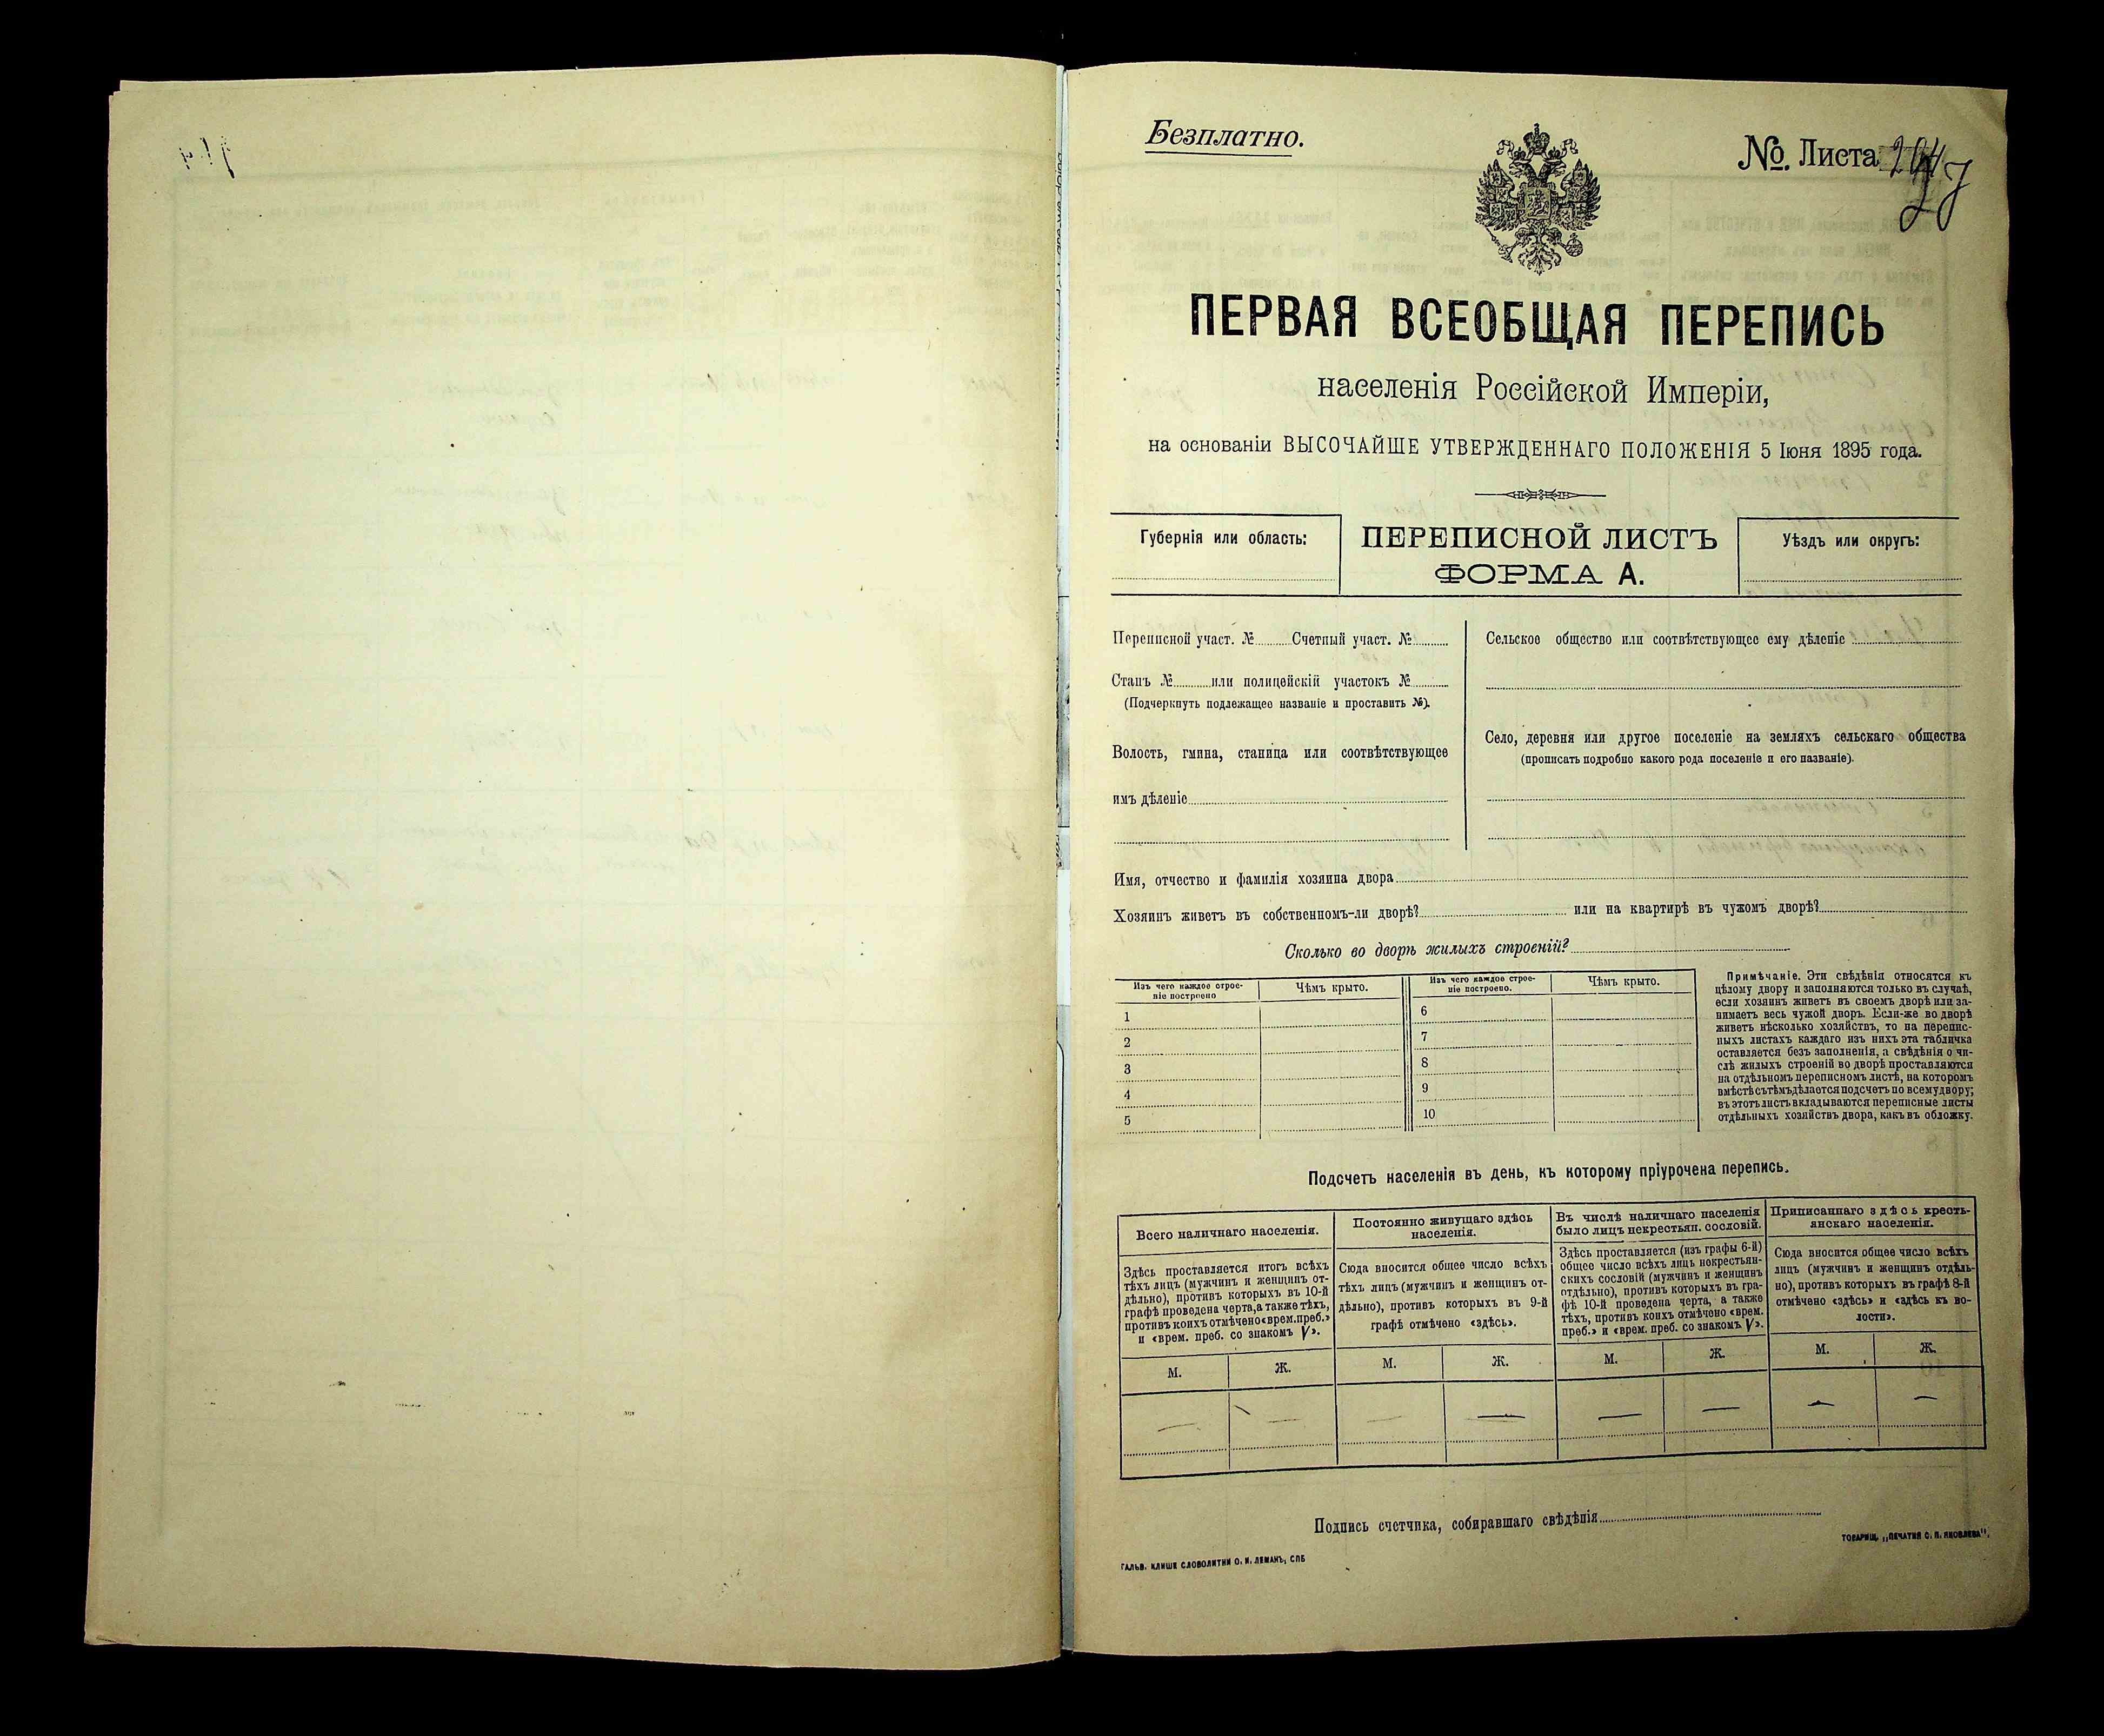 Безплатно.
№ Листа
ПЕРВАЯ ВСЕОБЩАЯ ПЕРЕПИСЬ
населенія Россійской Имперіи,
на основаніи ВЫСОЧАЙШЕ УТВЕРЖДЕННАГО ПОЛОЖЕНІЯ 5 Іюня 1895 года.
Губернія или область:
ПЕРЕПИСНОЙ ЛИСТЪ
ФОРМА А.
Уѣздъ или округъ:
Переписной участ. № Счетный участ. №
Станъ № или полицейскій участокъ №
(Подчеркнуть подлежащее названіе и проставить №).
Волость, гмина, станица или соотвѣтствующее
имъ дѣленіе
Сельское общество или соотвѣтствующее ему дѣленіе
Село, деревня или другое поселеніе на земляхъ сельскаго общества
(прописать подробно какого рода поселеніе и его названіе).
Имя, отчество и фамилія хозяина двора
Хозяинъ живетъ въ собственномъ-ли дворѣ? или на квартирѣ въ чужомъ дворѣ?
Сколько во дворѣ жилыхъ строеній?
Изъ чего каждое строе-
ніе построено
Чѣмъ крыто.
1
2
3
4
5
Изъ чего каждое строе-
ніе построено.
Чѣмъ крыто.
6
7
8
9
10
Примѣчаніе. Эти свѣдѣнія относятся къ
цѣлому двору и заполняются только въ случаѣ,
если хозяинъ живетъ въ своемъ дворѣ или за-
нимаетъ весь чужой дворъ. Если-же во дворѣ
живетъ нѣсколько хозяйствъ, то на перепис-
ныхъ листахъ каждаго изъ нихъ эта табличка
оставляется безъ заполненія, а свѣдѣнія о чи-
слѣ жилыхъ строеній во дворѣ проставляются
на отдѣльномъ переписномъ листѣ, на которомъ
вмѣстѣ съ тѣмъ дѣлается подсчетъ по всему двору;
въ этотъ листъ вкладываются переписные листы
отдѣльныхъ хозяйствъ двора, какъ въ обложку.
Подсчетъ населенія въ день, къ которому пріурочена перепись.
Всего наличнаго населенія.
Здѣсь проставляется итогъ всѣхъ
тѣхъ лицъ (мужчинъ и женщинъ от-
дѣльно), противъ которыхъ въ 10-й
графѣ проведена черта, а также тѣхъ,
противъ коихъ отмѣчено «врем. преб.»
и «врем. преб. со знакомъ V».
М. Ж.
Постоянно живущаго здѣсь
населенія.
Сюда вносится общее число всѣхъ
тѣхъ лицъ (мужчинъ и женщинъ от-
дѣльно), противъ которыхъ въ 9-й
графѣ отмѣчено «здѣсь».
М. Ж.
Въ числѣ наличнаго населенія
было лицъ некрестьян. сословій.
Здѣсь проставляется (изъ графы 6-й)
общее число всѣхъ лицъ некрестьян-
скихъ сословій (мужчинъ и женщинъ
отдѣльно), противъ которыхъ въ гра-
фѣ 10-й проведена черта, а также
тѣхъ, противъ коихъ отмѣчено «врем.
преб.» и «врем. преб. со знакомъ V».
М. Ж.
Приписаннаго здѣсь кресть-
янскаго населенія.
Сюда вносится общее число всѣхъ
лицъ (мужчинъ и женщинъ отдѣль-
но), противъ которыхъ въ графѣ 8-й
отмѣчено «здѣсь» и «здѣсь къ во-
лости».
М. Ж.
— — — — — — — —
Подпись счетчика, собиравшаго свѣдѣнія
ГАЛЬВ. КЛИШЕ СЛОВОЛИТНИ О. И. ЛЕМАНЪ, СПБ
ТОВАРИЩ. „ПЕЧАТНЯ С. П. ЯКОВЛЕВА".